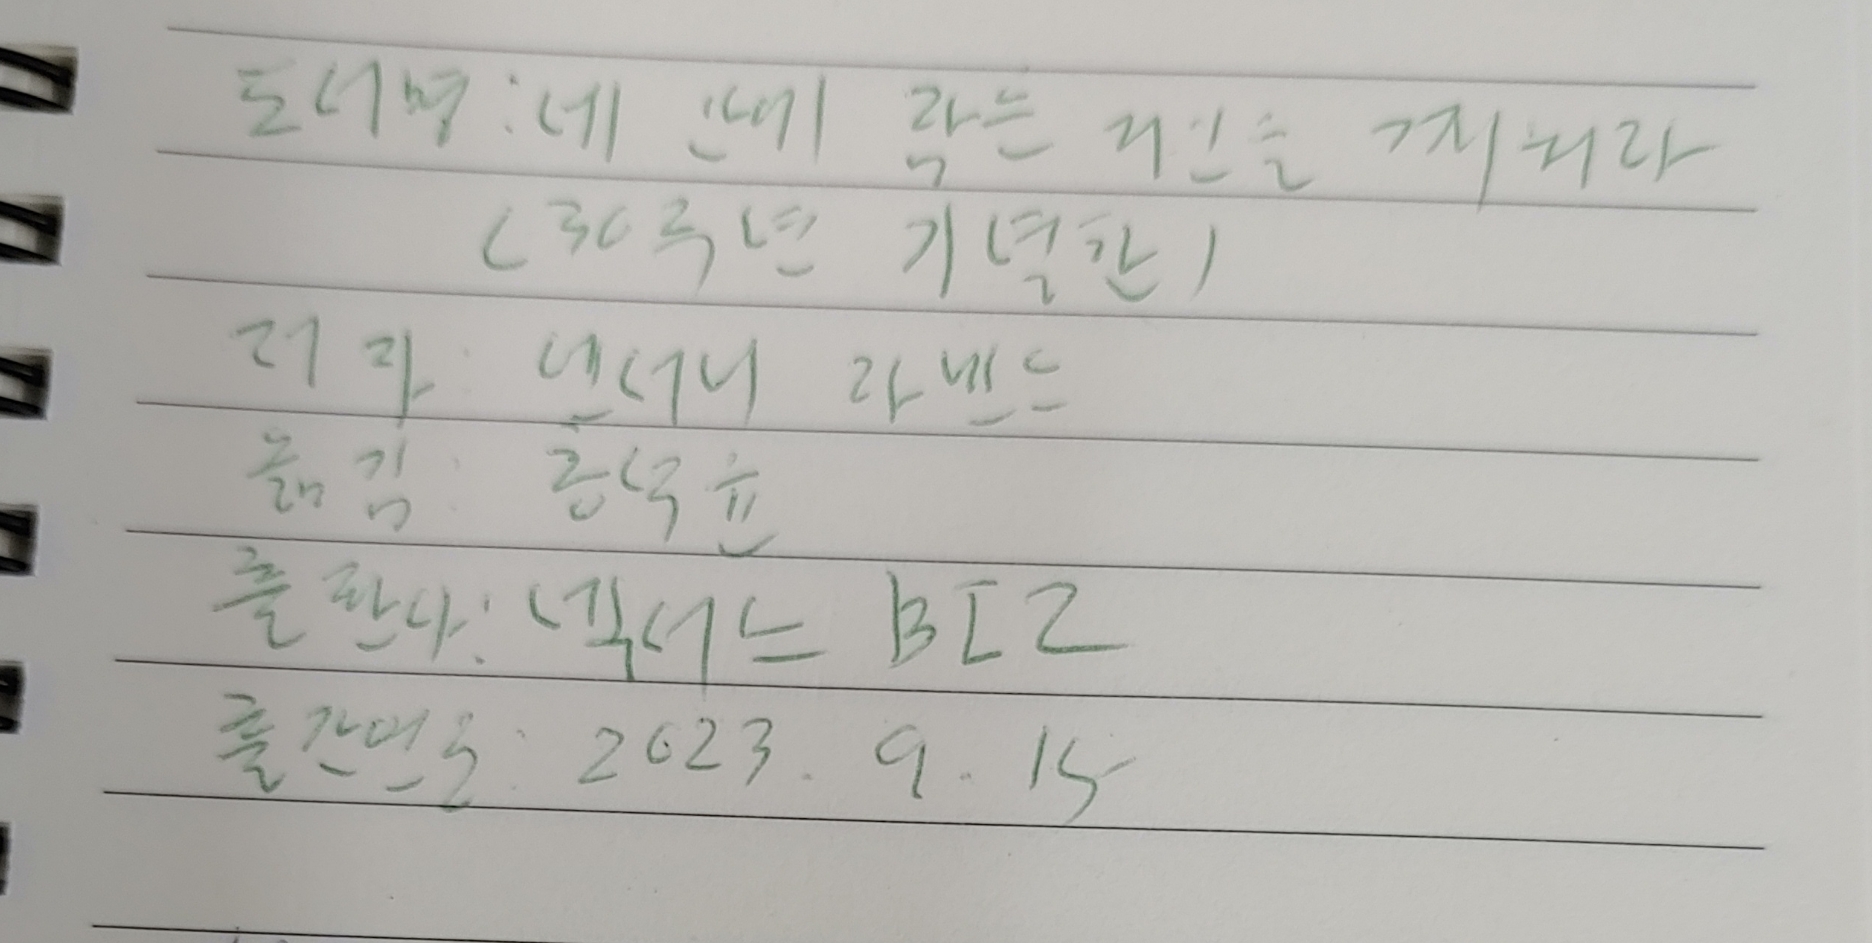 도서명: 네 안에 잠든 거인을 깨워라
(30주년 기념판)
저자: 앤서니 라빈스
옮김: 홍석윤
출판사: 넥서스 BIZ
출간연월: 2023. 9. 15